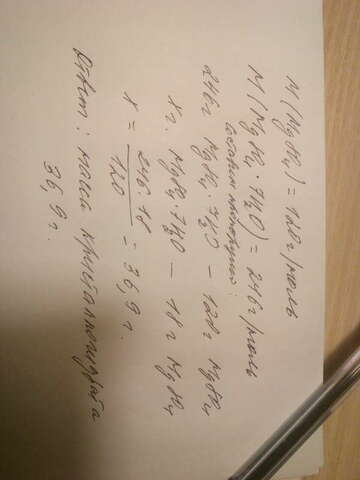 M(MgSO₄) = 120 г/моль
M(MgSO₄·7H₂O) = 246 г/моль
Составим пропорцию:
246 г MgSO₄·7H₂O – 120 г MgSO₄
x г. MgSO₄·7H₂O – 18 г MgSO₄
x = 246·18 / 120 = 36,9 г.
Ответ: масса кристаллогидрата
36,9 г.